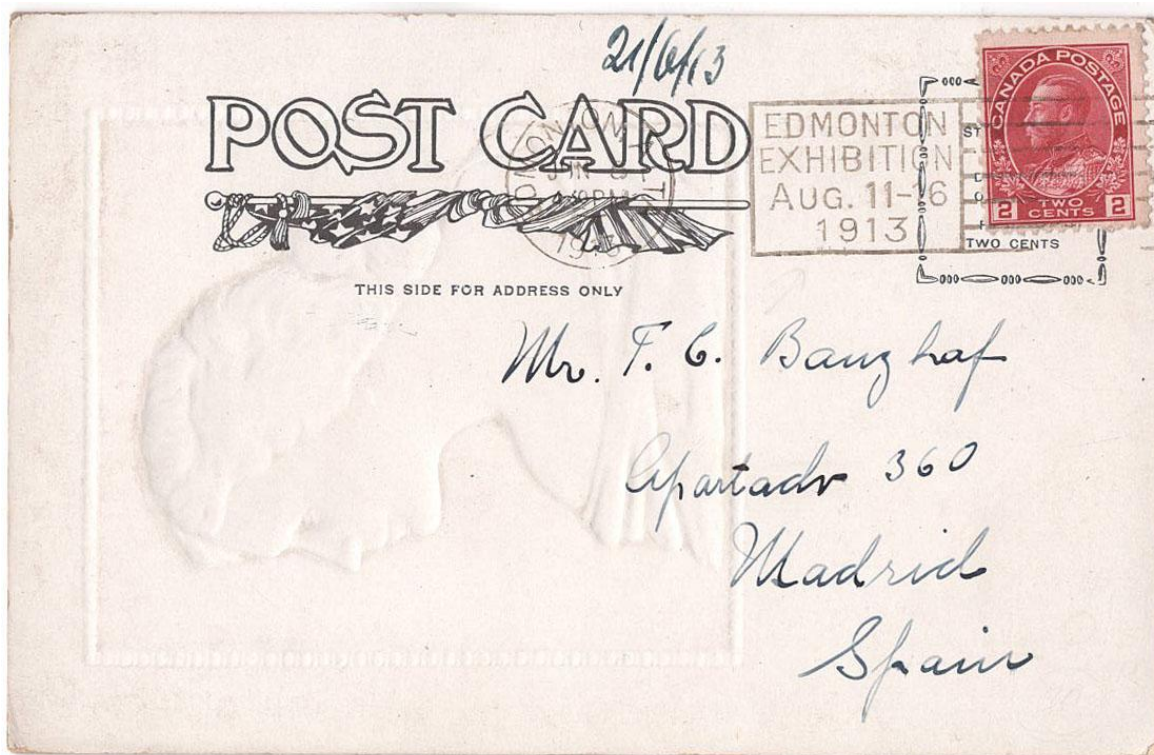 21/6/13
POST CARD
EDMONTON
EXHIBITION
AUG. 11-16
1913
CANADA POSTAGE
2 TWO CENTS 2
TWO CENTS
1913
THIS SIDE FOR ADDRESS ONLY
Mr. F. C. Banzhaf
Apartado 360
Madrid
Spain